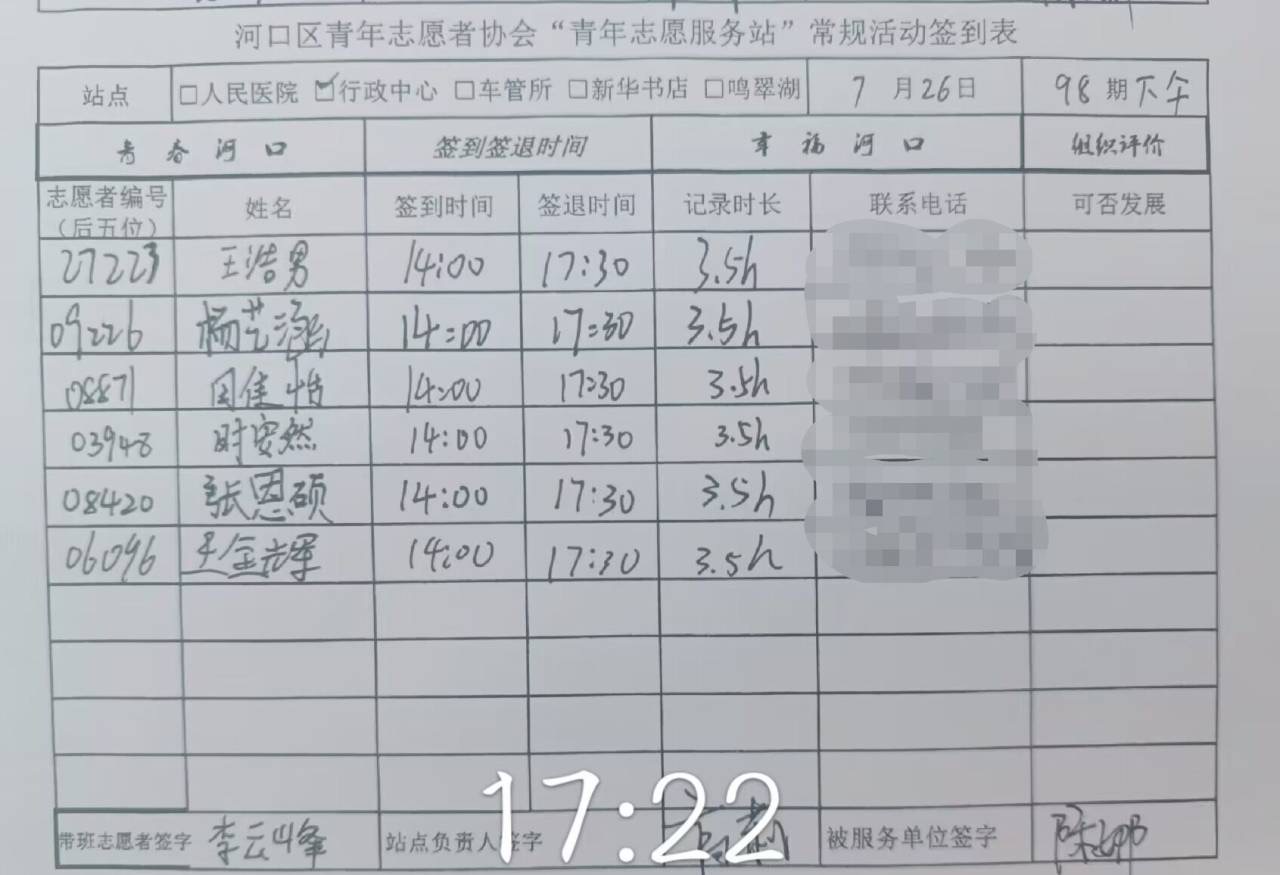 河口区青年志愿者协会“青年志愿服务站”常规活动签到表
站点 □人民医院 ☑行政中心 □车管所 □新华书店 □鸣翠湖 7月26日 98期下午
青春河口 签到签退时间 幸福河口 组织评价
志愿者编号（后五位） 姓名 签到时间 签退时间 记录时长 联系电话 可否发展
27223 王浩男 14:00 17:30 3.5h
09226 杨艺涵 14:00 17:30 3.5h
08871 周佳怡 14:00 17:30 3.5h
03948 时安然 14:00 17:30 3.5h
08420 张恩硕 14:00 17:30 3.5h
06096 王金辉 14:00 17:30 3.5h
带班志愿者签字 李云峰 站点负责人签字 被服务单位签字 陈娜
17:22